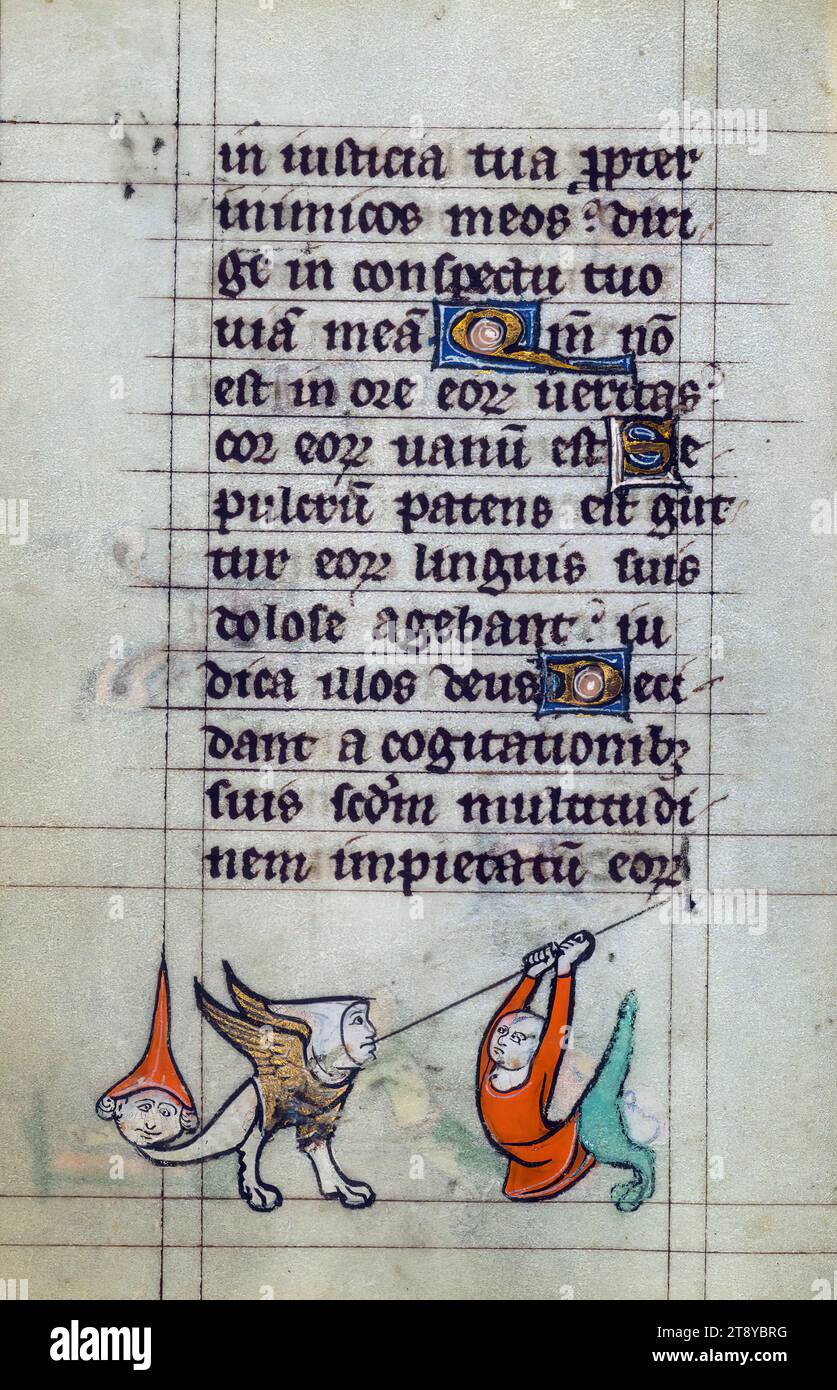 in iusticia tua ꝓpter
inimicos meos: diri
ge in conspectu tuo
uiā meā Qm̄ nō
est in ore eoꝝ ueritas:
cor eoꝝ uanū est Se
pulcrū patens est gut
tur eoꝝ linguis suis
dolose agebant: iu
dica illos deus Deci
dant a cogitationibꝫ
suis scdm multitudi
nem impietatū eoꝝ
alamy
Image ID: 2T8YBRG
www.alamy.com